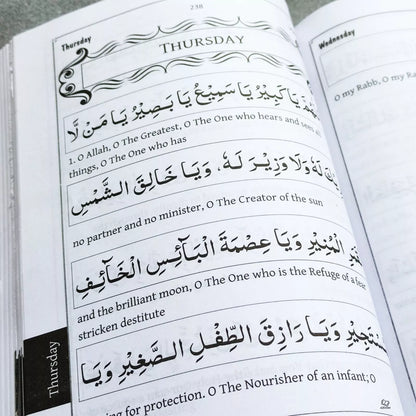 238
Thursday
THURSDAY
يَا كَبِيْرُ يَا سَمِيْعُ يَا بَصِيْرُ يَا مَنْ لَّا
1. O Allah, O The Greatest, O The One who hears and sees all
things, O The One who has
لَهٗ وَلَا وَزِيْرَ لَهٗ، وَيَا خَالِقَ الشَّمْسِ
no partner and no minister, O The Creator of the sun
الْمُنِيْرِ وَيَا عِصْمَةَ الْبَآئِسِ الْخَآئِفِ
and the brilliant moon, O The One who is the Refuge of a fear
stricken destitute
وَيَا رَازِقَ الطِّفْلِ الصَّغِيْرِ وَيَا
for protection. O The Nourisher of an infant; O
Thursday
Wednesday
O my Rabb, O my